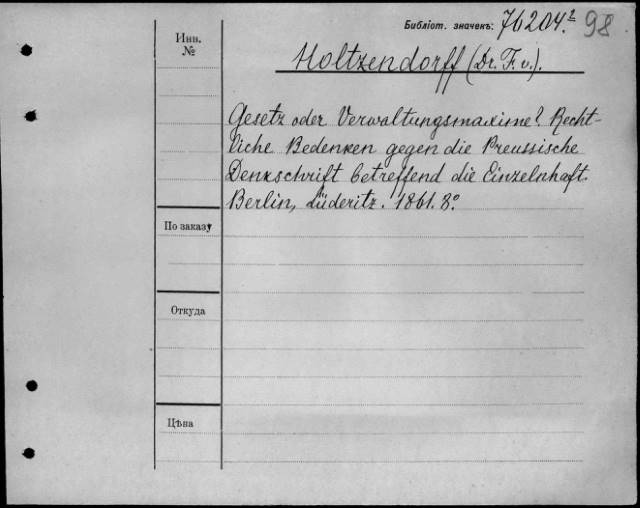 Библіот. значекъ: 76204.² 98
Инв.
№
Holtzendorff (Dr. F. v.).
Gesetz oder Verwaltungsmaxime? Recht-
liche Bedenken gegen die Preussische
Denkschrift betreffend die Einzelnhaft.
Berlin, Lüderitz. 1861. 8º
По заказу
Откуда
Цѣна